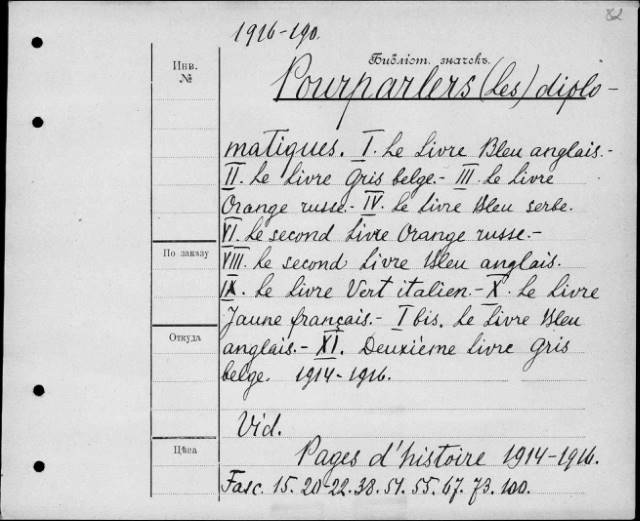 82
1916-190.
Инв.
№
Библіот. значекъ.
Pourparlers (les) diplo-
matiques. I. Le Livre Bleu anglais.-
II. Le Livre Gris belge.- III. Le Livre
Orange russe.- IV. Le Livre Bleu serbe.
VI. Le second Livre Orange russe.-
По заказу
VIII. Le second Livre Bleu anglais.
IX. Le Livre Vert italien.- X. Le Livre
Jaune français.- I bis. Le Livre Bleu
Откуда
anglais.- XI. Deuxième Livre Gris
belge. 1914-1916.
Vid.
Цѣна
Pages d'histoire 1914-1916.
Fasc. 15. 20-22. 38. 51. 55. 67. 73. 100.